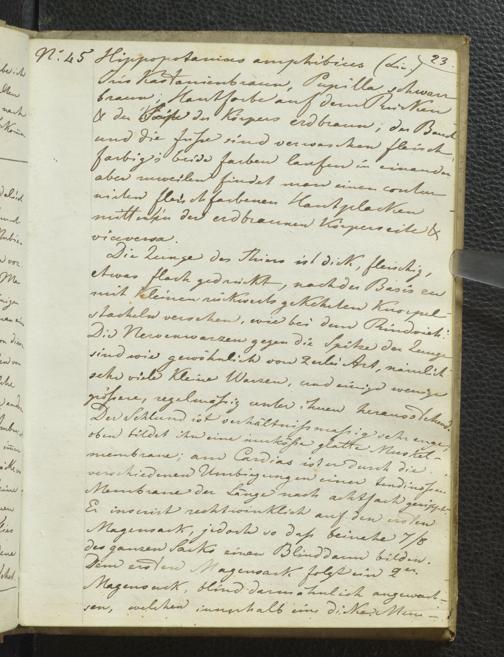 23.
No. 45 Hippopotamus amphibius (Lin.)
Iris Kastanienbraun, Pupilla schwarz
braun; Hautfarbe auf dem Rücken
& der Seite des Körpers erdbraun; der Bauch
und die Füsse sind verwaschen fleisch-
farbig; beide farben laufen in einander
aber zuweilen findet man einen contur-
nirten fleischfarbenen Hautflecken
mitten in der erdbraunen Körperseite &
viceversa.
Die Zunge des Thiers ist dick, fleischig,
etwas flach gedrückt, nach der Basis zu
mit kleinen rückwerts gekehrten Knorpel-
stacheln versehen, wie bei dem Rindvieh.
Die Nervenwarzen gegen die Spitze der Zunge
sind wie gewöhnlich von zweierlei Art, nämlich
sehr viele kleine Warzen, und einige wenige
grössere, regelmässig unter ihnen herausstehend.
Der Schlund ist verhältnissmässig sehr enge,
oben bildet ihn eine glatte Muskel-
membrane; am Cardias ist er durch die
verschiedenen Umbiegungen einer tendinösen
Membrane der Länge nach achtfach gerippt.
Er inserirt rechtwinklich auf den ersten
Magensack, jedoch so dass beinahe 7/8
des ganzen Sacks einen Blinddarm bilden.
Dem ersten Magensack folgt ein 2ter
Magensack, blinddarmähnlich angewach-
sen, welchen innerhalb eine dicke Mem-